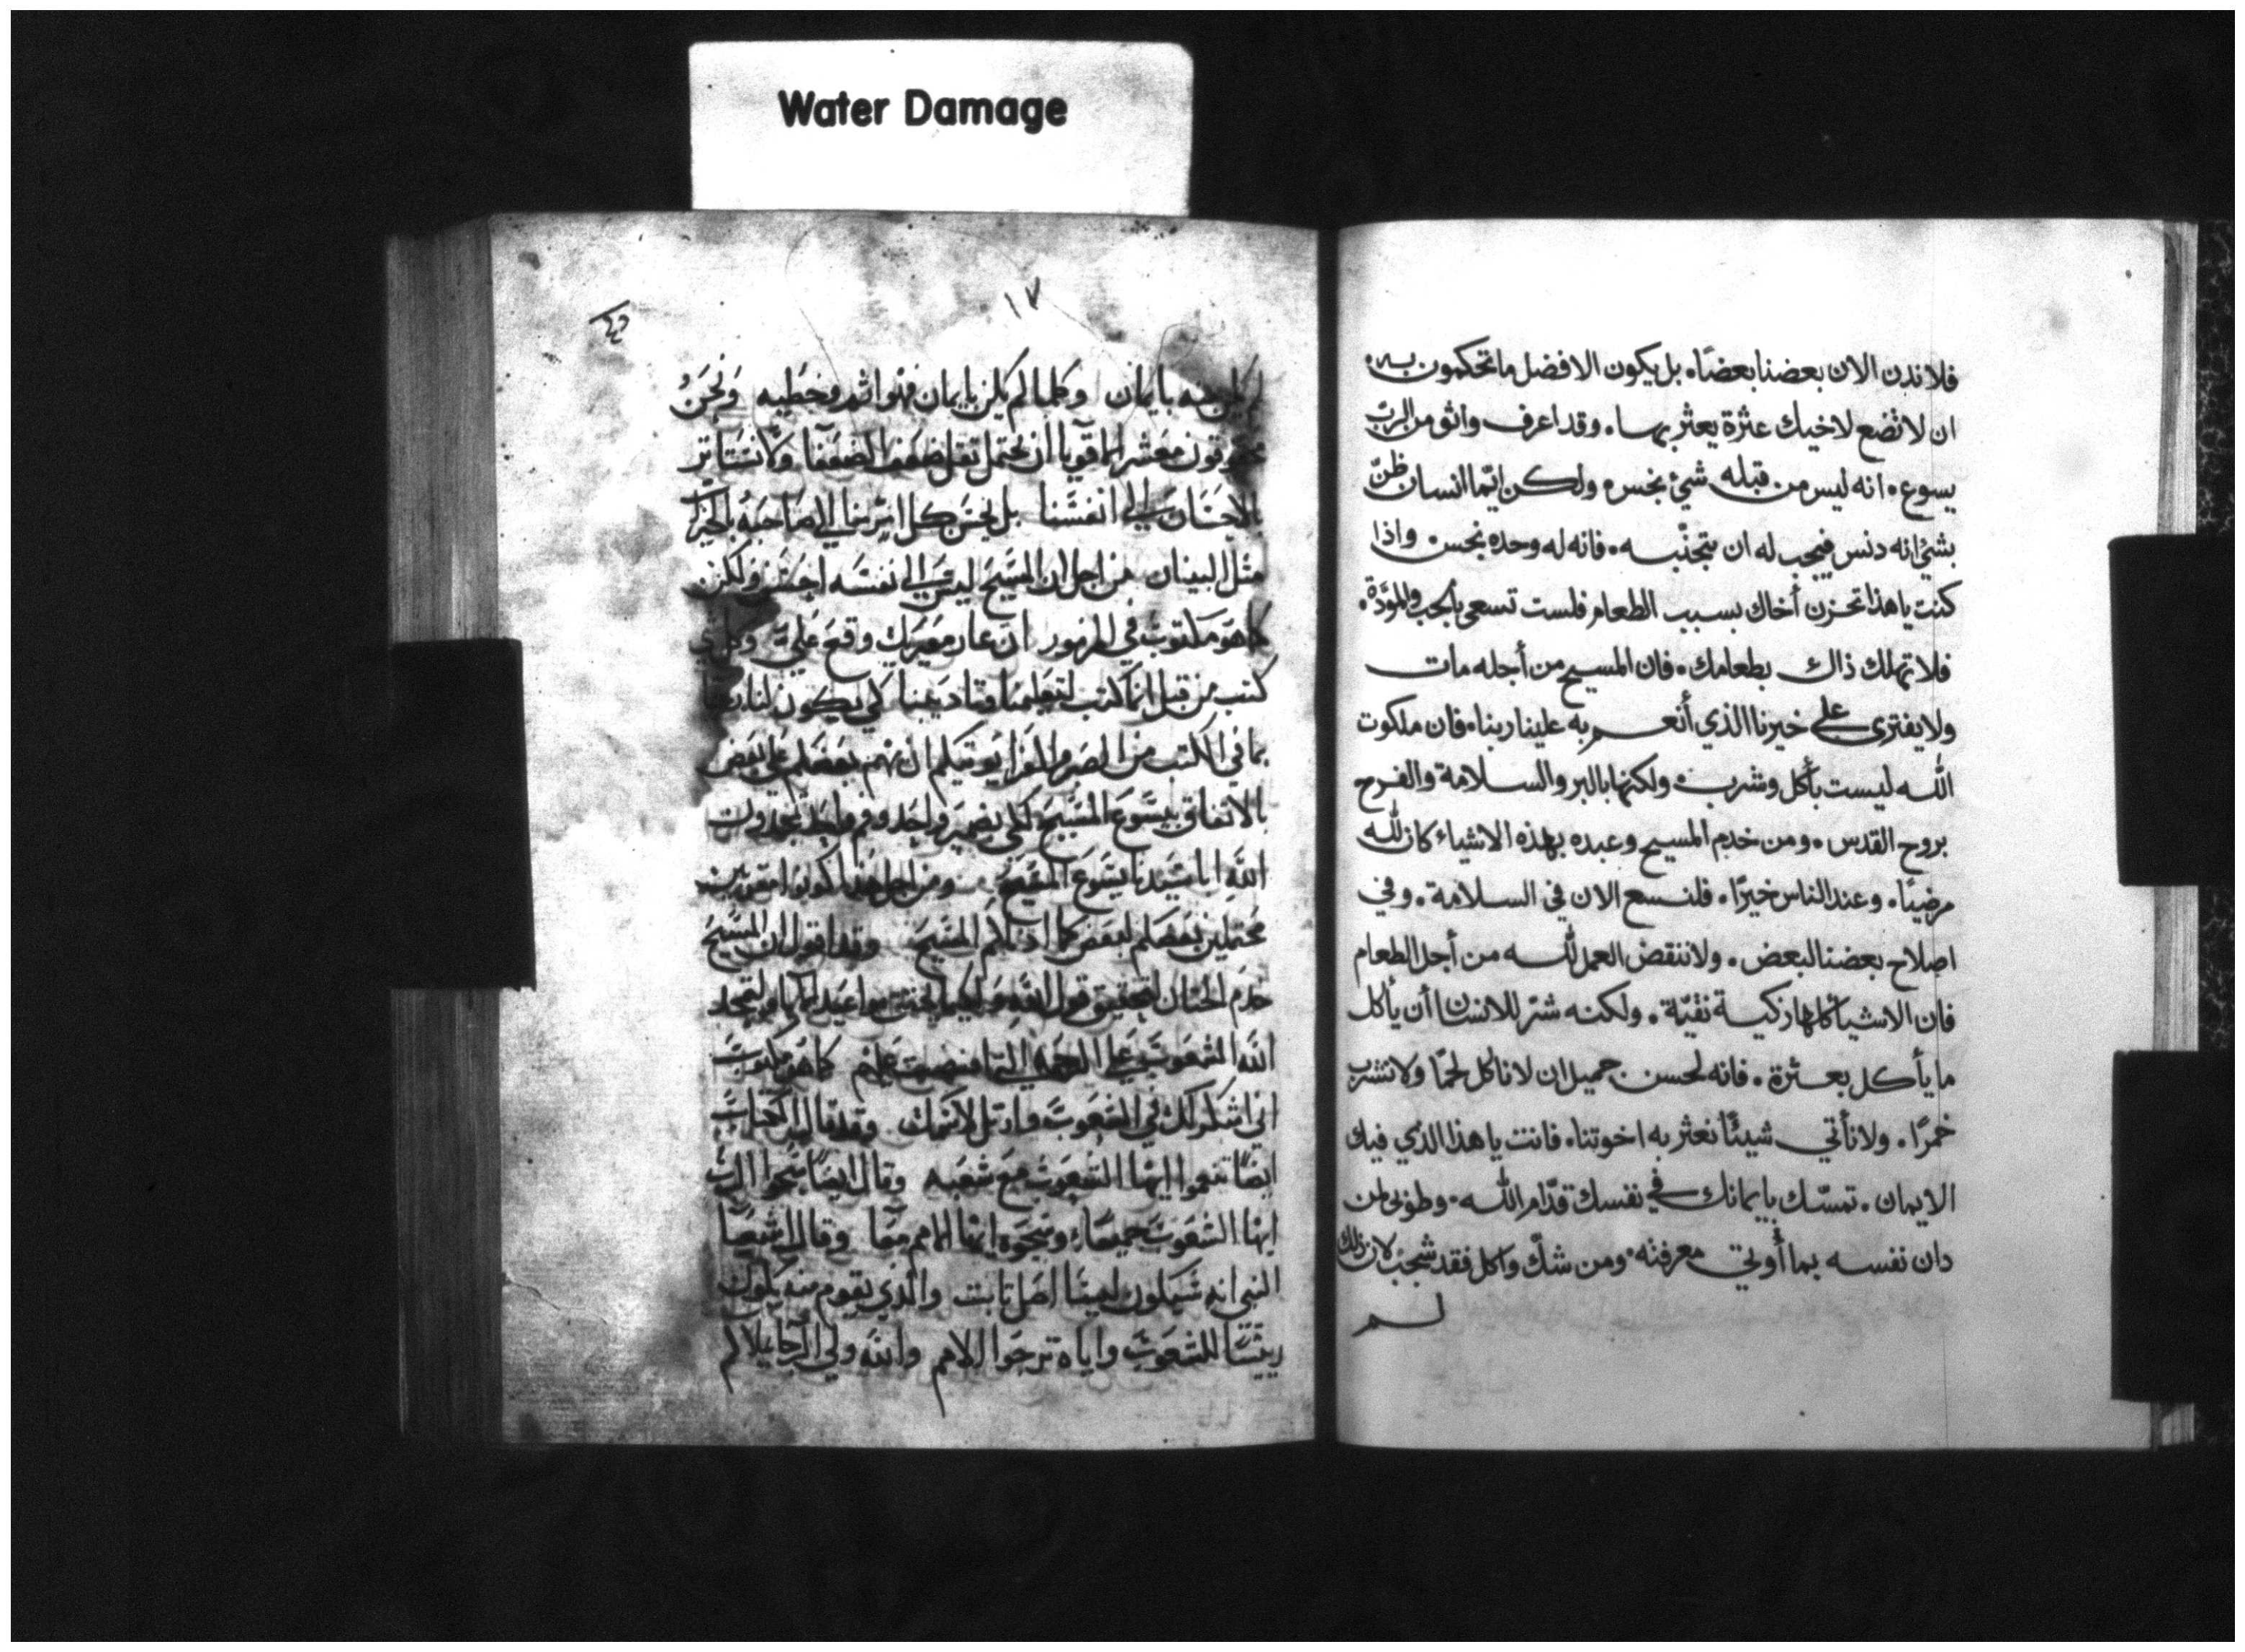 Water Damage
فلا ندن الان بعضنا بعضًا. بل يكون الافضل ما تحكمون به.
ان لا تضع لاخيك عثرة يعثر بها. وقد اعرف واثق من الربّ
يسوع. انه ليس من قبله شيء نجس. ولكن ايّما انسان ظنّ
بشيء انه دنس فيجب له ان يتجنّبه. فانه له وحده نجس. واذا
كنت يا هذا تحزن أخاك بسبب الطعام فلست تسعى بالحب والمودّة.
فلا تهلك ذاك بطعامك. فان المسيح من أجله مات
ولا يفترى على خيرنا الذي أنعم به علينا ربنا. فان ملكوت
الله ليست بأكل وشرب. ولكنها بالبر والسلامة والفرح
بروح القدس. ومن خدم المسيح وعبده بهذه الاشياء كان لله
مرضيًا. وعند الناس خيرًا. فلنسع الان في السلامة. وفي
اصلاح بعضنا لبعض. ولا ننقض العمل لله من أجل الطعام
فان الاشيا كلها زكية نقيّة. ولكنه شرّ للانسان أن يأكل
ما يأكل بعثرة. فانه لحسن جميل ان لا نأكل لحمًا ولا نشرب
خمرًا. ولا نأتي شيئًا نعثر به اخوتنا. فانت يا هذا الذي فيك
الايمان. تمسّك بايمانك في نفسك قدّام الله. وطوبى لمن
دان نفسه بما أُوتي معرفته. ومن شكّ واكل فقد شجب لان ذلك
لم
١٧
بايمان وكلما لم يكن بايمان فهو اثم وخطيه ونحن
معشر الاقويا ان نحتمل ثقل ضعف الضعفا ولا نستاتر
بالاحسان الي انفسنا بل يحسن كل امري منا الي صاحبه بالخير
مثل البنيان من اجل ان المسيح ليس الي نفسه احسن ولكن
كما هو مكتوب في المزمور ان عار معيريك وقع علي
كتب من قبل انما كتب لتعليمنا وتاديبنا كي يكون لنا
بما في الكتب من الصبر والعزا يوتيكم ان يهتم بعضكم علي بعض
بالاتفاق بيسوع المسيح لكي بضمير واحد وفم واحد تمجدون
الله ابا سيدنا يسوع المسيح ومن اجل هذا كونوا
محتملين بعضكم لبعض كما المسيح وقد اقول ان المسيح
خدم الختان لتحقيق قول الله
الله الشعوب علي الرحمه التي عليهم كما هو مكتوب
اني اشكر لك في الشعوب وارتل لاسمك وقد قال الكتاب
ايضا تنعموا ايها الشعوب مع شعبه وقال ايضا سبحوا الرب
ايها الشعوب جميعا وسبحوه ايها الامم معا وقال اشعيا
النبي انه سيكون ليسا اصل ثابت والذي يقوم منه يكون
رييسا للشعوب واياه ترجوا الامم والله ولي الرجا